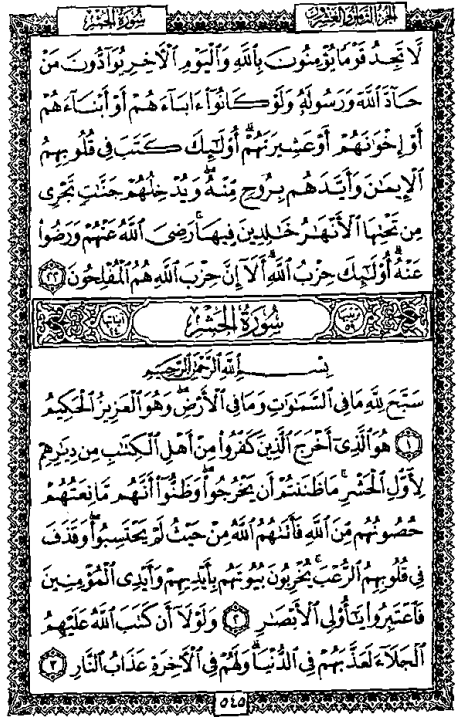 سُورَةُ الحَشْرِ
الجزء الثامن والعشرون
لَّا تَجِدُ قَوْمًا يُؤْمِنُونَ بِٱللَّهِ وَٱلْيَوْمِ ٱلْآخِرِ يُوَآدُّونَ مَنْ
حَآدَّ ٱللَّهَ وَرَسُولَهُۥ وَلَوْ كَانُوٓا۟ ءَابَآءَهُمْ أَوْ أَبْنَآءَهُمْ
أَوْ إِخْوَٰنَهُمْ أَوْ عَشِيرَتَهُمْ ۚ أُو۟لَٰٓئِكَ كَتَبَ فِى قُلُوبِهِمُ
ٱلْإِيمَٰنَ وَأَيَّدَهُم بِرُوحٍ مِّنْهُ ۖ وَيُدْخِلُهُمْ جَنَّٰتٍ تَجْرِى
مِن تَحْتِهَا ٱلْأَنْهَٰرُ خَٰلِدِينَ فِيهَا ۚ رَضِىَ ٱللَّهُ عَنْهُمْ وَرَضُوا۟
عَنْهُ ۚ أُو۟لَٰٓئِكَ حِزْبُ ٱللَّهِ ۚ أَلَآ إِنَّ حِزْبَ ٱللَّهِ هُمُ ٱلْمُفْلِحُونَ ٢٢
ترتيبها ٥٩ سُورَةُ الحَشْرِ آياتها ٢٤
بِسْمِ ٱللَّهِ ٱلرَّحْمَٰنِ ٱلرَّحِيمِ
سَبَّحَ لِلَّهِ مَا فِى ٱلسَّمَٰوَٰتِ وَمَا فِى ٱلْأَرْضِ ۖ وَهُوَ ٱلْعَزِيزُ ٱلْحَكِيمُ
١ هُوَ ٱلَّذِىٓ أَخْرَجَ ٱلَّذِينَ كَفَرُوا۟ مِنْ أَهْلِ ٱلْكِتَٰبِ مِن دِيَٰرِهِمْ
لِأَوَّلِ ٱلْحَشْرِ ۚ مَا ظَنَنتُمْ أَن يَخْرُجُوا۟ ۖ وَظَنُّوٓا۟ أَنَّهُم مَّانِعَتُهُمْ
حُصُونُهُم مِّنَ ٱللَّهِ فَأَتَىٰهُمُ ٱللَّهُ مِنْ حَيْثُ لَمْ يَحْتَسِبُوا۟ ۖ وَقَذَفَ
فِى قُلُوبِهِمُ ٱلرُّعْبَ ۚ يُخْرِبُونَ بُيُوتَهُم بِأَيْدِيهِمْ وَأَيْدِى ٱلْمُؤْمِنِينَ
فَٱعْتَبِرُوا۟ يَٰٓأُو۟لِى ٱلْأَبْصَٰرِ ٢ وَلَوْلَآ أَن كَتَبَ ٱللَّهُ عَلَيْهِمُ
ٱلْجَلَآءَ لَعَذَّبَهُمْ فِى ٱلدُّنْيَا ۖ وَلَهُمْ فِى ٱلْآخِرَةِ عَذَابُ ٱلنَّارِ ٣
٥٤٥